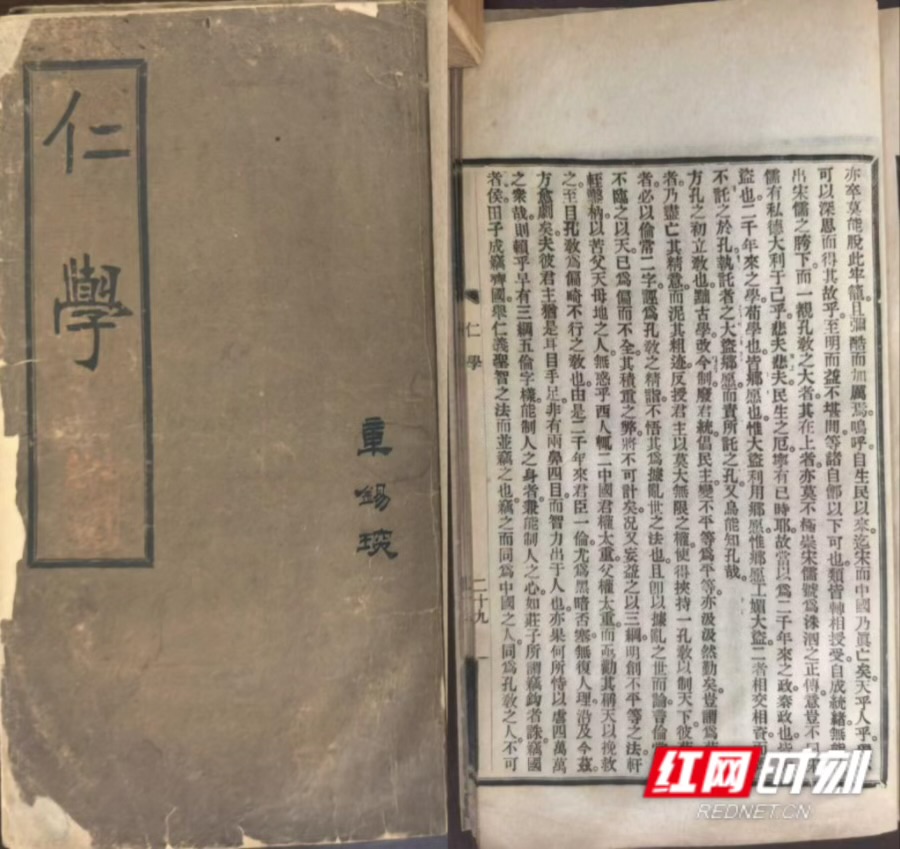 仁學
章錫琛
亦卒莫能脫此牢籠。且彌酷而加厲焉。嗚呼。自生民以來。迄宋而中國乃眞亡矣。天乎人乎。
可以深思而得其故乎。至明而益不堪聞等諸自鄶以下可也。類皆轉相授受。自成統緒。無能
出宋儒之胯下。而一覩孔敎之大者。其在上者。亦莫不極崇宋儒。號爲洙泗之正傳。意豈不
儒有私德大利于己乎。悲夫悲夫。民生之厄。寧有已時耶。故常以爲二千年來之政。秦政也。皆
盜也。二千年來之學。荀學也。皆鄉愿也。惟大盜利用鄉愿。惟鄉愿工媚大盜。二者相交相資。而
不託之於孔。執託者之大盜鄉愿。而責所託之孔。又烏能知孔哉。
方孔之初立敎也。黜古學。改今制。廢君統。倡民主。變不平等爲平等。亦汲汲然勤矣。豈謂爲
者。乃盡亡其精意。而泥其粗迹。反授君主以莫大無限之權。使得挾持一孔敎以制天下。彼爲
者。必以倫常二字。誣爲孔敎之精詣。不悟其爲據亂世之法也。且卽以據亂之世而論。言倫常
不臨之以天。已爲偏而不全。其積重之弊。將不可計矣。況又妄益之以三綱。明創不平等之法。軒
輊鑿枘。以苦父天母地之人。無惑乎西人輒二中國君權太重。父權太重。而亟勸其稱天以挽救
之。至目孔敎爲偏畸不行之敎也。由是二千年來君臣一倫。尤爲黑暗否塞。無復人理。沿及今茲。
方愈劇矣。夫彼君主猶是耳目手足。非有兩鼻四目。而智力出于人也。亦果何所恃以虐四萬萬
之衆哉。則賴乎早有三綱五倫字樣。能制人之身者。兼能制人之心。如莊子所謂竊鉤者誅。竊國
者侯。田子成竊齊國。舉仁義聖智之法而並竊之也。竊之而同爲中國之人。同爲孔敎之人。不可
仁學
二十九
红网时刻
REDNET.CN